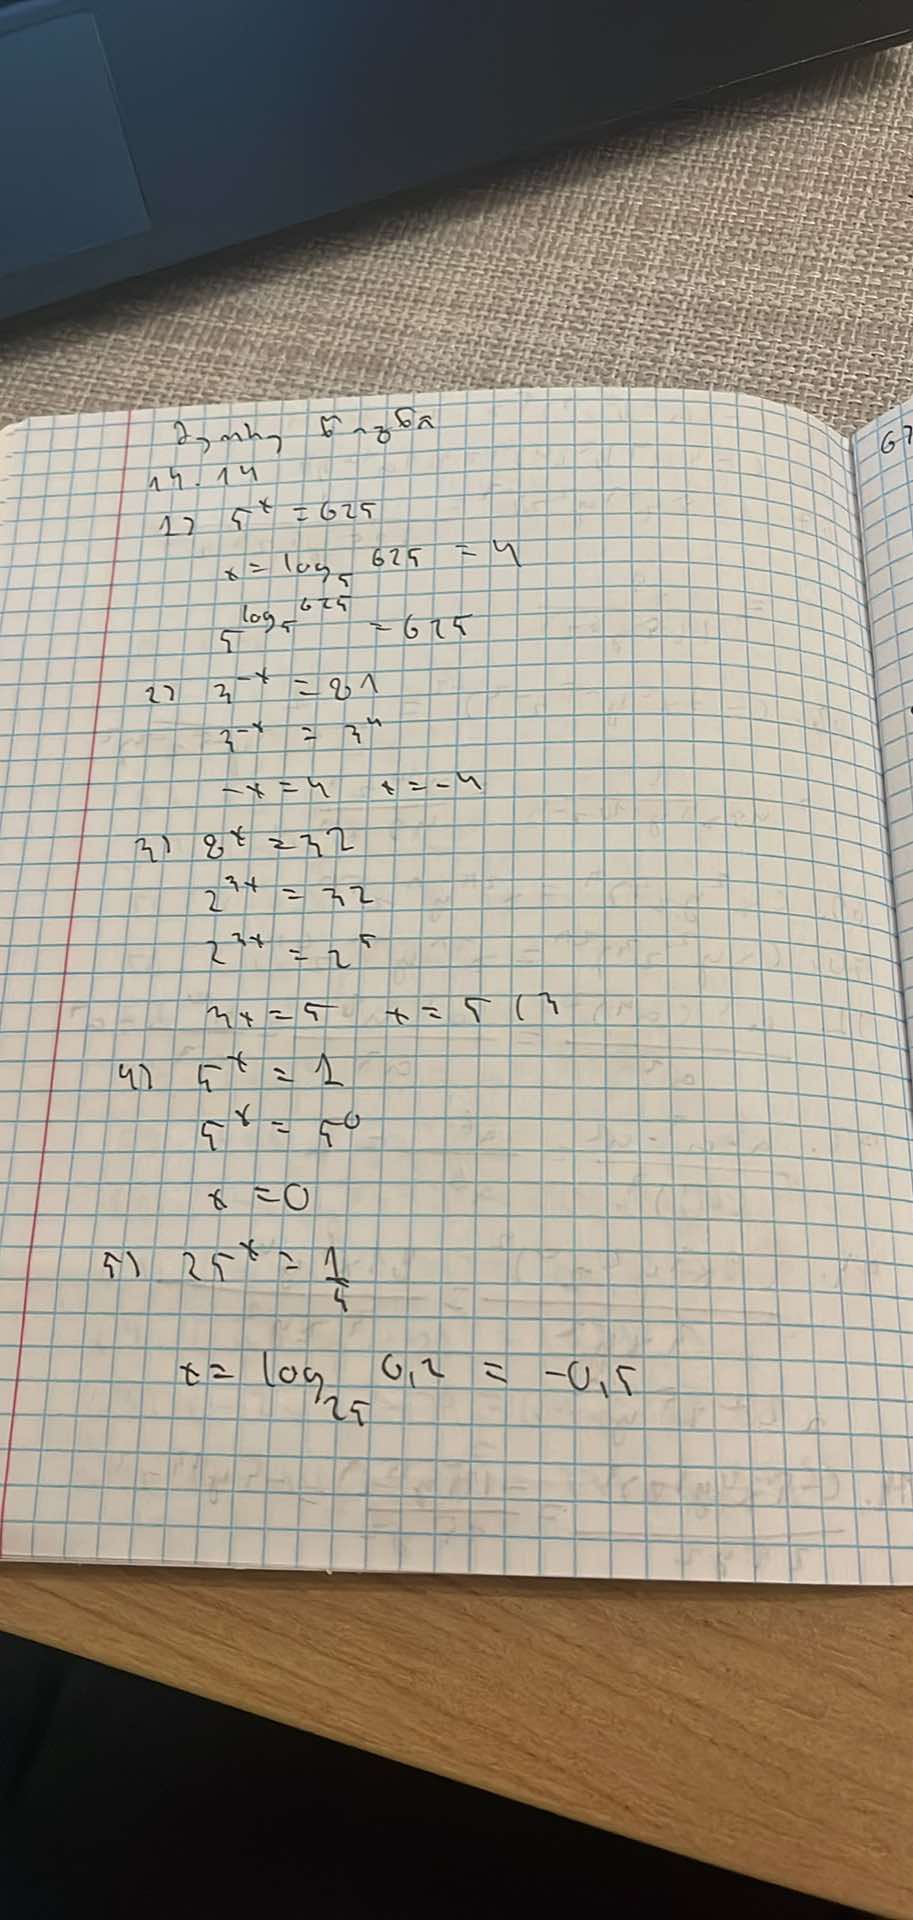 14.14
1) 5^x = 625
x = log_5 625 = 4
5^{log_5 625} = 625
2) 3^{-x} = 81
3^{-x} = 3^4
-x = 4 x = -4
3) 8^x = 32
2^{3x} = 32
2^{3x} = 2^5
3x = 5 x = 5/3
4) 5^x = 1
5^x = 5^0
x = 0
5) 25^x = \frac{1}{5}
x = log_{25} 0,2 = -0,5